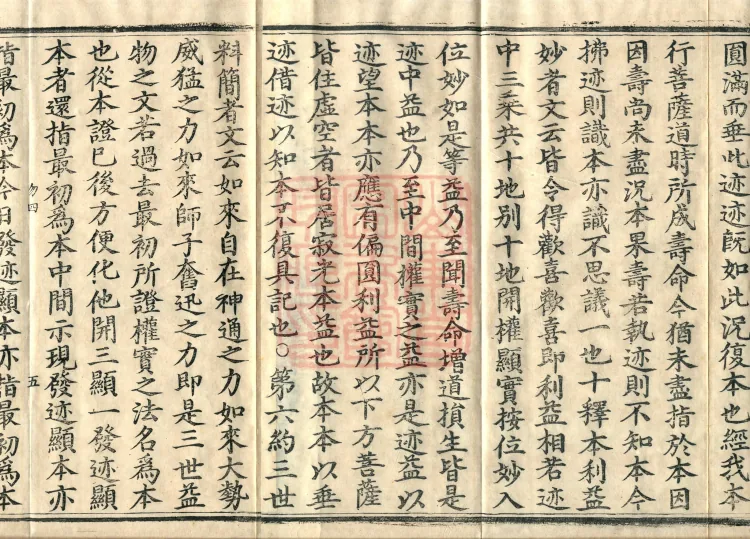 圓滿而垂此迹迹既如此況復本也經我本
行菩薩道時所成壽命今猶未盡指於本因
因壽尚未盡況本果壽若執迹則不知本今
拂迹則識本亦識不思議一也十釋本利益
妙者文云皆令得歡喜歡喜即利益相若迹
中三乘共十地別十地開權顯實按位妙入
位妙如是等益乃至聞壽命增道損生皆是
迹中益也乃至中間權實之益亦是迹益以
迹望本本亦應有偏圓利益所以下方菩薩
皆住虛空者皆居寂光本益也故本本以垂
迹借迹以知本不復具記也○第六約三世
料簡者文云如來自在神通之力如來大勢
威猛之力如來師子奮迅之力即是三世益
物之文若過去最初所證權實之法名為本
也從本證已後方便化他開三顯一發迹顯
本者還指最初為本中間示現發迹顯本亦
五
指最初為本今日發迹顯本亦指最初為本